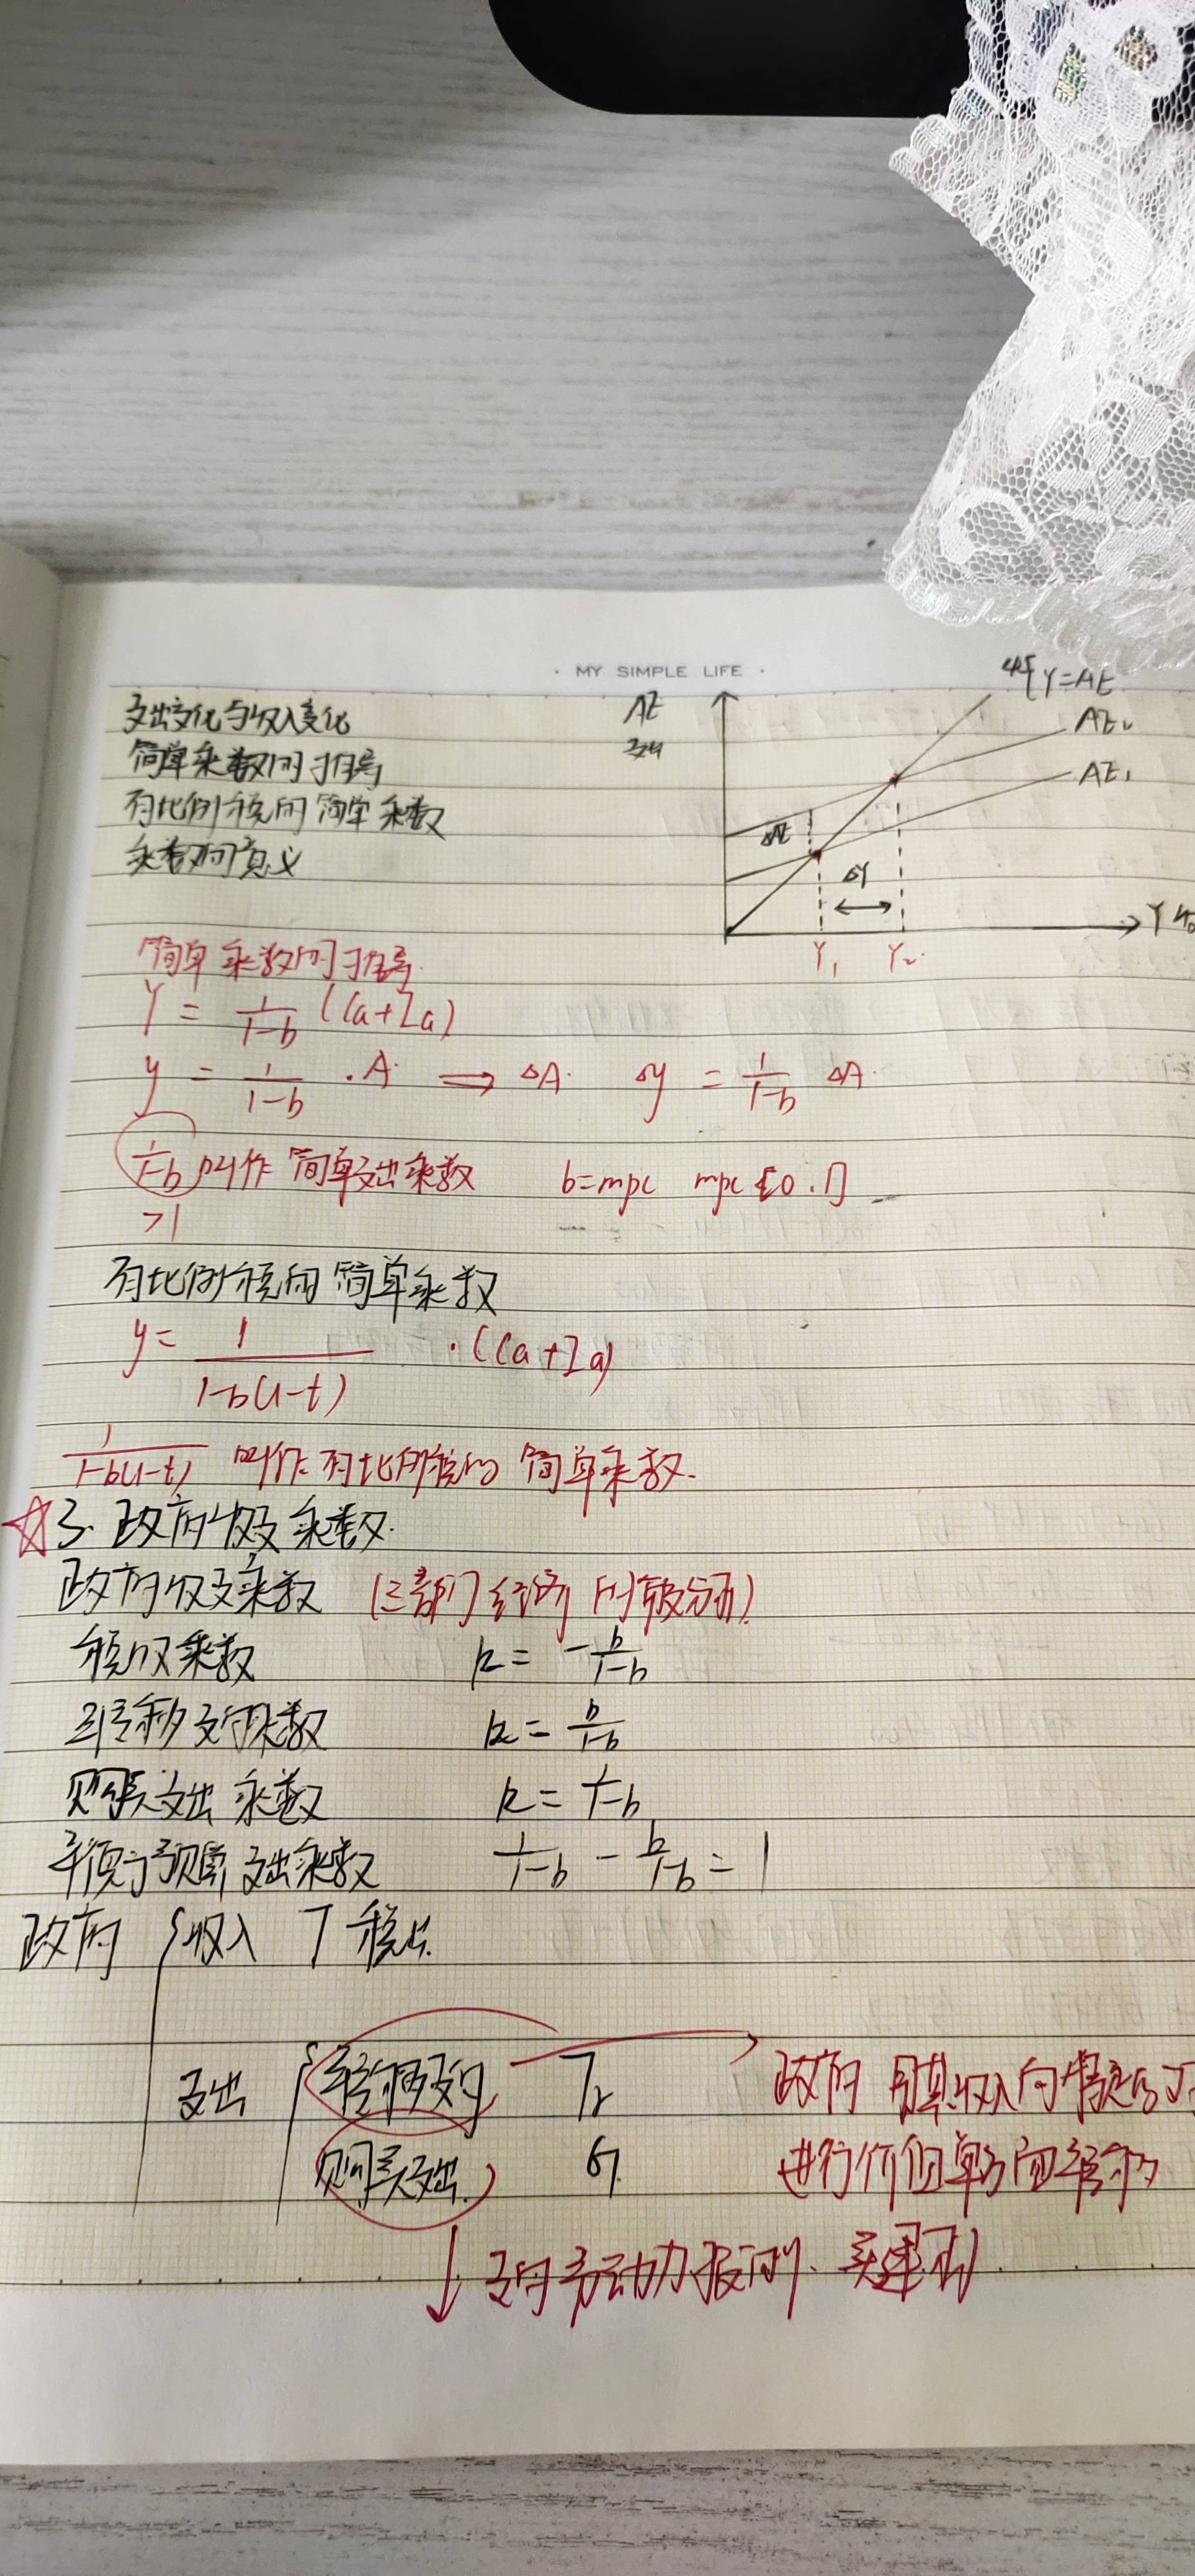 · MY SIMPLE LIFE ·
支出变化与收入变化
简单乘数的推导
有比例税的简单乘数
乘数的意义
AE
支出
45° Y=AE
AE₂
AE₁
ΔAE
ΔY
Y
Y₁ Y₂
简单乘数的推导
Y = 1/(1-b) (Ca+Ia)
y = 1/(1-b) · A ⟹ ΔA Δy = 1/(1-b) ΔA
1/(1-b) 叫作 简单支出乘数 b=mpc mpc [0.1]
>1
有比例税的简单乘数
y = 1/(1-b(1-t)) · (Ca+Ia)
1/(1-b(1-t)) 叫作有比例税的简单乘数.
☆3. 政府收支乘数.
政府收支乘数 (三部门经济 )
税收乘数 k = -b/(1-b)
转移支付乘数 k = b/(1-b)
购买支出乘数 k = 1/(1-b)
平衡预算支出乘数 1/(1-b) - b/(1-b) = 1
政府 收入 T 税收
支出 转移支付 Tr 政府用其收入向特定的
购买支出 G 进行价值单方面转移
↓ 支付劳动力报酬、买